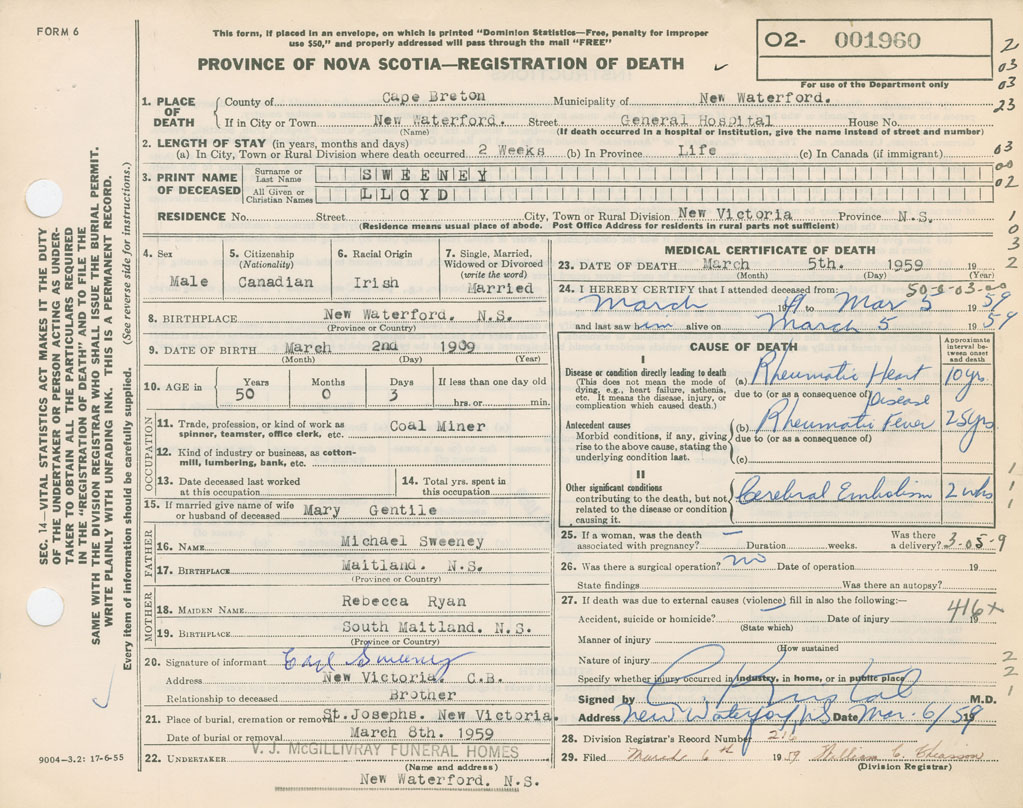 FORM 6
This form, if placed in an envelope, on which is printed "Dominion Statistics—Free, penalty for improper
use $50," and properly addressed will pass through the mail "FREE"
02- 001960
For use of the Department only
PROVINCE OF NOVA SCOTIA—REGISTRATION OF DEATH
2
03
03
23
03
00
02
1
0
3
2
SEC. 14—VITAL STATISTICS ACT MAKES IT THE DUTY
OF THE UNDERTAKER OR PERSON ACTING AS UNDER-
TAKER TO OBTAIN ALL THE PARTICULARS REQUIRED
IN THE "REGISTRATION OF DEATH" AND TO FILE THE
SAME WITH THE DIVISION REGISTRAR WHO SHALL ISSUE THE BURIAL PERMIT.
WRITE PLAINLY WITH UNFADING INK. THIS IS A PERMANENT RECORD.
Every item of information should be carefully supplied. (See reverse side for instructions.)
1. PLACE OF DEATH
County of Cape Breton Municipality of New Waterford.
If in City or Town New Waterford. Street General Hospital House No.
(Name) (If death occurred in a hospital or institution, give the name instead of street and number)
2. LENGTH OF STAY (in years, months and days)
(a) In City, Town or Rural Division where death occurred 2 Weeks (b) In Province Life (c) In Canada (if immigrant)
3. PRINT NAME OF DECEASED
Surname or Last Name SWEENEY
All Given or Christian Names LLOYD
RESIDENCE No. Street City, Town or Rural Division New Victoria Province N.S.
(Residence means usual place of abode. Post Office Address for residents in rural parts not sufficient)
4. Sex
Male
5. Citizenship
(Nationality)
Canadian
6. Racial Origin
Irish
7. Single, Married,
Widowed or Divorced
(write the word)
Married
8. BIRTHPLACE New Waterford. N.S.
(Province or Country)
9. DATE OF BIRTH March 2nd 1909
(Month) (Day) (Year)
10. AGE in Years Months Days If less than one day old
50 0 3 hrs. or min.
OCCUPATION
11. Trade, profession, or kind of work as
spinner, teamster, office clerk, etc. Coal Miner
12. Kind of industry or business, as cotton-
mill, lumbering, bank, etc.
13. Date deceased last worked
at this occupation
14. Total yrs. spent in
this occupation
15. If married give name of wife
or husband of deceased Mary Gentile
FATHER
16. NAME Michael Sweeney
17. BIRTHPLACE Maitland. N.S.
(Province or Country)
MOTHER
18. MAIDEN NAME Rebecca Ryan
19. BIRTHPLACE South Maitland. N.S.
(Province or Country)
20. Signature of informant Carl Sweeney
Address New Victoria. C.B.
Relationship to deceased Brother
21. Place of burial, cremation or removal St. Josephs. New Victoria.
Date of burial or removal March 8th. 1959
22. UNDERTAKER V. J. McGILLIVRAY FUNERAL HOMES
(Name and address)
New Waterford. N.S.
9004—3.2: 17-6-55
MEDICAL CERTIFICATE OF DEATH
23. DATE OF DEATH March 5th. 1959 19
(Month) (Day) (Year)
24. I HEREBY CERTIFY that I attended deceased from:
50-0-03-00
March 1949 to Mar 5 1959
and last saw him alive on March 5 1959
CAUSE OF DEATH
Approximate
interval be-
tween onset
and death
I
Disease or condition directly leading to death
(This does not mean the mode of
dying, e.g., heart failure, asthenia,
etc. It means the disease, injury, or
complication which caused death.)
(a) Rheumatic Heart Disease 10 yrs.
due to (or as a consequence of)
Antecedent causes
Morbid conditions, if any, giving
rise to the above cause, stating the
underlying condition last.
(b) Rheumatic Fever 25 yrs
due to (or as a consequence of)
(c)
II
Other significant conditions
contributing to the death, but not
related to the disease or condition
causing it.
Cerebral Embolism 2 wks
1
1
1
25. If a woman, was the death
associated with pregnancy? Duration weeks. Was there
a delivery?
3-05-9
26. Was there a surgical operation? no Date of operation 19
State findings Was there an autopsy?
27. If death was due to external causes (violence) fill in also the following:—
416+
Accident, suicide or homicide? Date of injury 19
(State which)
Manner of injury
(How sustained
Nature of injury
Specify whether injury occurred in industry, in home, or in public place
2
2
1
Signed by M.D.
Address New Waterford, NS Date Mar. 6/59 19
28. Division Registrar's Record Number
29. Filed March 6th 1959 William C.
(Division Registrar)